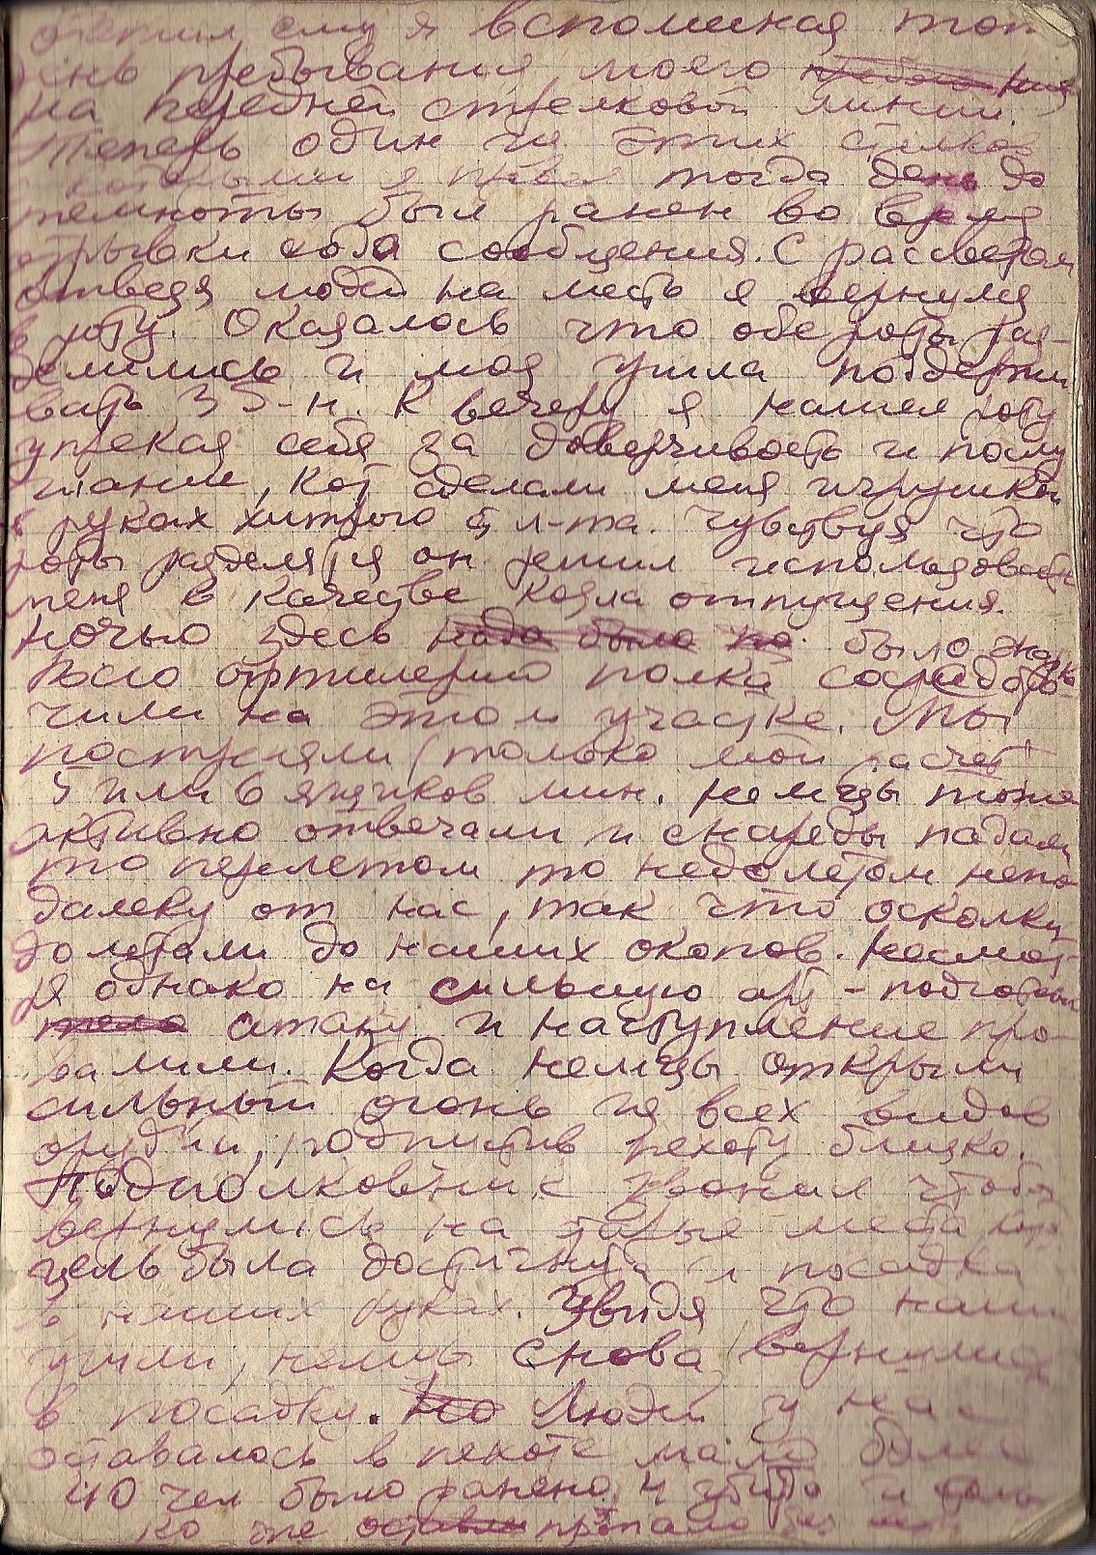 ответил ему я вспоминая тот
день пребывания моего
на передней стрелковой линии.
Теперь один из этих стрелков
с которыми я провел тогда день до
темноты был ранен во время
отрывки хода сообщения. С рассветом
отведя людей на место я вернулся
в роту. Оказалось что обе роты раз-
делились и моя ушла поддержи
вать 3 б-н. К вечеру я нашел роту
упрекая себя за доверчивость и послу
шание, кот сделали меня игрушкой
в руках хитрого л-та. Чувствуя что
роты разделятся он решил использовать
меня в качестве козла отпущения.
Ночью здесь было жарко
Всю артилерию полка сосредото
чили на этом участке. Мы
постреляли (только мой расчет
5 или 6 ящиков мин. Немцы тоже
активно отвечали и снаряды падали
то перелетом то недолетом непо
далеку от нас, так что осколки
долетали до наших окопов. Несмот-
ря однако на сильную арт-подготовку
атаку и наступление про
валили. Когда немцы открыли
сильный огонь из всех видов
орудий, подпустив пехоту близко.
Подполковник звонил чтобы
вернулись на старые места
цель была достигнута и посадка
в наших руках. Увидя что наши
ушли, немцы снова вернулись
в посадку. Но Людей у нас
оставалось в пехоте мало более
40 чел было ранено и убито и столь
ко же пропало без